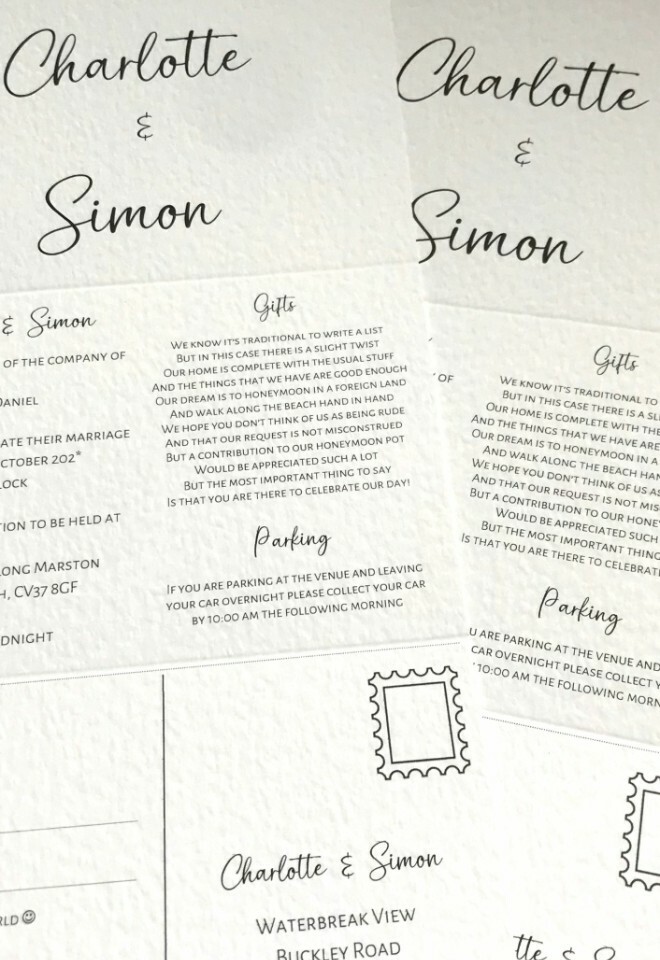 Charlotte
&
Simon
Charlotte
&
Simon
& Simon
OF THE COMPANY OF
DANIEL
ATE THEIR MARRIAGE
CTOBER 202*
LOCK
TION TO BE HELD AT
LONG MARSTON
H, CV37 8GF
DNIGHT
Gifts
WE KNOW IT'S TRADITIONAL TO WRITE A LIST
BUT IN THIS CASE THERE IS A SLIGHT TWIST
OUR HOME IS COMPLETE WITH THE USUAL STUFF
AND THE THINGS THAT WE HAVE ARE GOOD ENOUGH
OUR DREAM IS TO HONEYMOON IN A FOREIGN LAND
AND WALK ALONG THE BEACH HAND IN HAND
WE HOPE YOU DON'T THINK OF US AS BEING RUDE
AND THAT OUR REQUEST IS NOT MISCONSTRUED
BUT A CONTRIBUTION TO OUR HONEYMOON POT
WOULD BE APPRECIATED SUCH A LOT
BUT THE MOST IMPORTANT THING TO SAY
IS THAT YOU ARE THERE TO CELEBRATE OUR DAY!
Parking
IF YOU ARE PARKING AT THE VENUE AND LEAVING
YOUR CAR OVERNIGHT PLEASE COLLECT YOUR CAR
BY 10:00 AM THE FOLLOWING MORNING
Y OF
Gifts
WE KNOW IT'S TRADITIONAL TO
BUT IN THIS CASE THERE IS A SLI
OUR HOME IS COMPLETE WITH THE
AND THE THINGS THAT WE HAVE ARE
OUR DREAM IS TO HONEYMOON IN A
AND WALK ALONG THE BEACH HAN
WE HOPE YOU DON'T THINK OF US A
AND THAT OUR REQUEST IS NOT MIS
BUT A CONTRIBUTION TO OUR HONEY
WOULD BE APPRECIATED SUCH
BUT THE MOST IMPORTANT THING
IS THAT YOU ARE THERE TO CELEBRAT
Parking
U ARE PARKING AT THE VENUE AND
CAR OVERNIGHT PLEASE COLLECT Y
10:00 AM THE FOLLOWING MORN
RLD ☺
Charlotte & Simon
WATERBREAK VIEW
BUCKLEY ROAD
tte & S